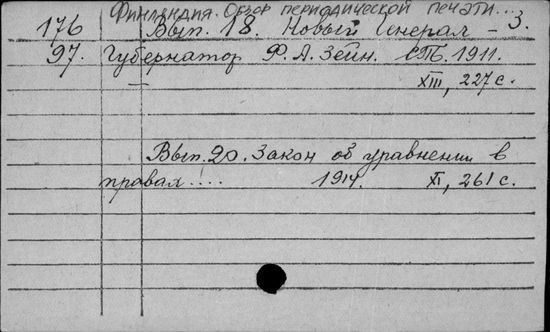 Финляндия. Обзор периодической печати... 3.
176 Вып. 18. Новый Генерал –
97. Губернатор Ф. А. Зейн. СПб. 1911.
— XIII, 227 с.
Вып. 20. Закон об уравнении в
правах.... 1914. XI, 261 с.